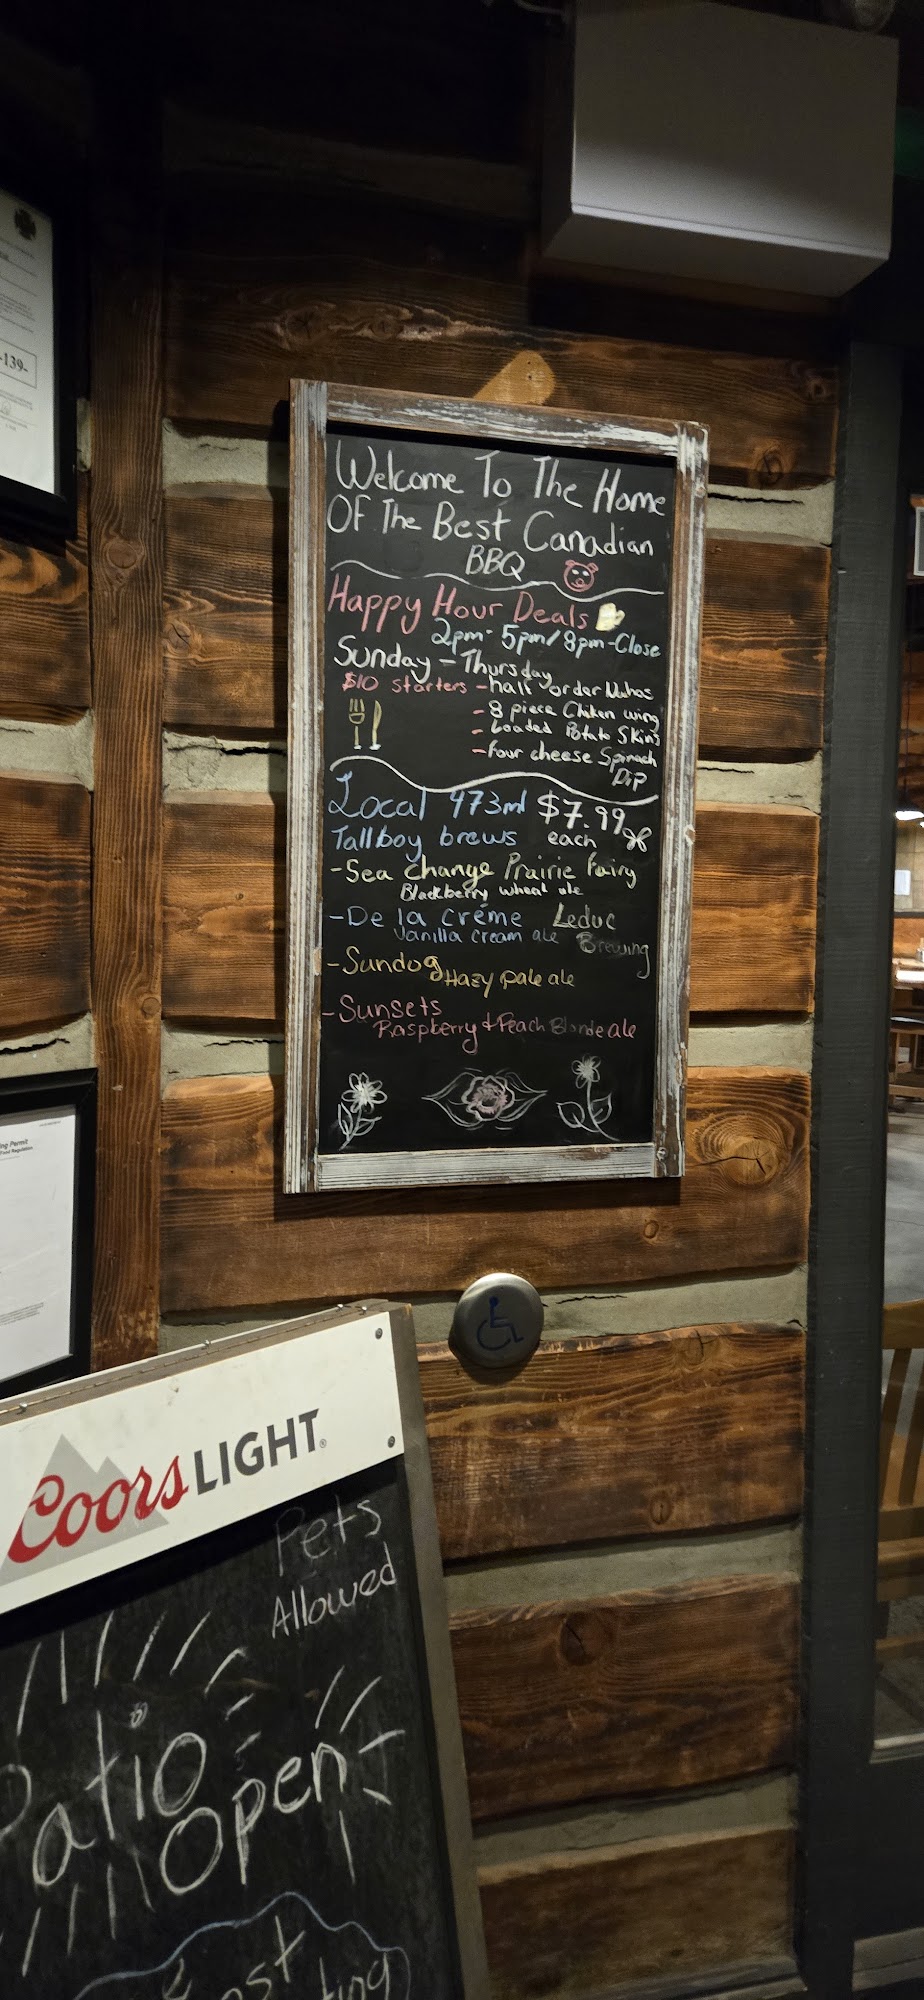 Welcome To The Home
Of The Best Canadian
BBQ
Happy Hour Deals
2pm- 5pm/8pm-Close
Sunday - Thursday
$10 starters - half order Nahos
- 8 piece Chiken wing
- Loaded Potato Skins
- four cheese Spinach
Dip
Local 473ml $7.99
Tallboy brews each
- Sea change Prairie Fairy
Blackberry wheat ale
- De la crème Leduc
Vanilla cream ale Brewing
- Sundog Hazy pale ale
- Sunsets
Raspberry & Peach Blonde ale
-139-
ng Permit
Food Regulation
Coors LIGHT
Pets
Allowed
Patio
Open